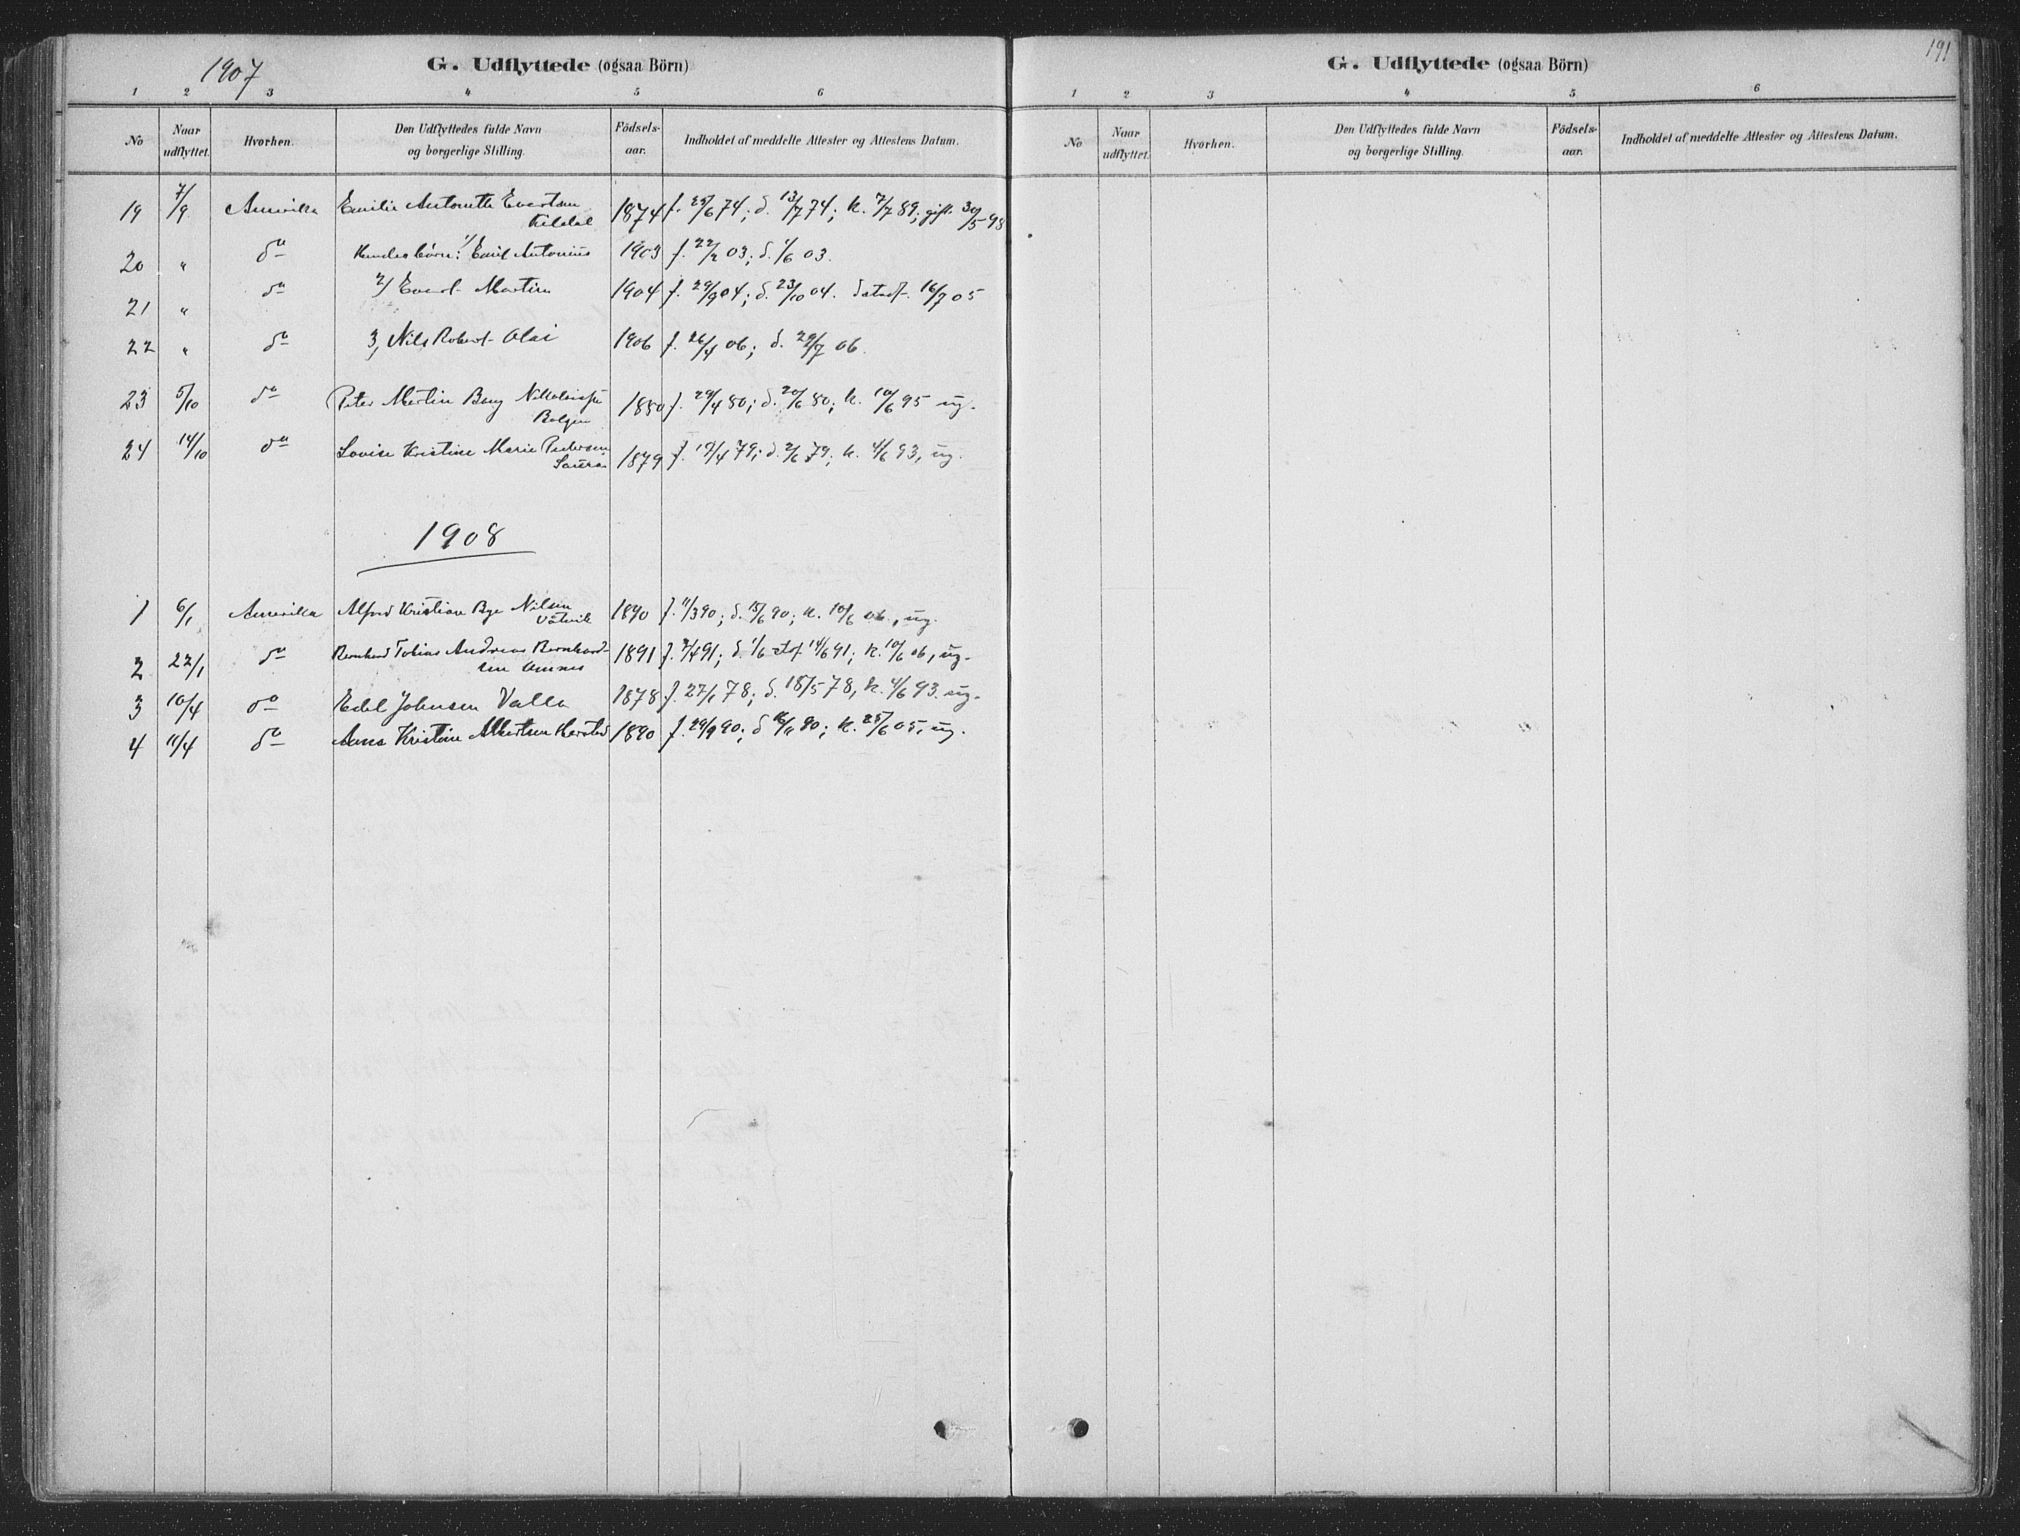 1907
G. Udflyttede (ogsaa Börn)
1 2 3 4 5 6
No Naar udflyttet. Hvorhen. Den Udflyttedes fulde Navn og borgerlige Stilling. Födselsaar. Indholdet af meddelte Attester og Attestens Datum.
19 7/9 Amerika Emilie Antonette Evertsen 1874 f. 25/6 74; d. 13/7 74; k. 7/7 89; gift 30/5 98
Kildal
20 " do Hendes börn: 1/ Emil Antonius 1903 f. 22/2 03; d. 1/6 03.
21 " do 2/ Evert Martin 1904 f. 29/9 04; d. 23/10 04. 16/7 05
22 " do 3, Nils Robert Olai 1906 f. 26/4 06; d. 29/7 06.
23 5/10 do Peter Martin Bang 1880 f. 29/4 80; d. 20/6 80; k. 10/6 95 ug.
24 14/10 do Lovise Kristine Marie Pedersen 1879 f. 19/4 79; d. 2/6 79; k. 4/6 93, ug.
1908
1 6/1 Amerika Alfred Kristian Bye Nilsen 1890 f. 11/3 90; d. 15/6 90; k. 10/6 06., ug.
2 22/1 do Bernhard Tobias Andreas Bernhard- 1891 f. 7/4 91; d. 1/6 14/6 91; k. 10/6 06, ug.
sen
3 10/4 do Edel Johnsen Valla 1878 f. 27/1 78; d. 18/5 78, k. 4/6 93. ug.
4 11/4 do Kristine Albertsen 1890 f. 29/9 90; d. 90; k. 25/6 05, ug.
191
G. Udflyttede (ogsaa Börn)
1 2 3 4 5 6
No Naar udflyttet. Hvorhen. Den Udflyttedes fulde Navn og borgerlige Stilling. Födselsaar. Indholdet af meddelte Attester og Attestens Datum.